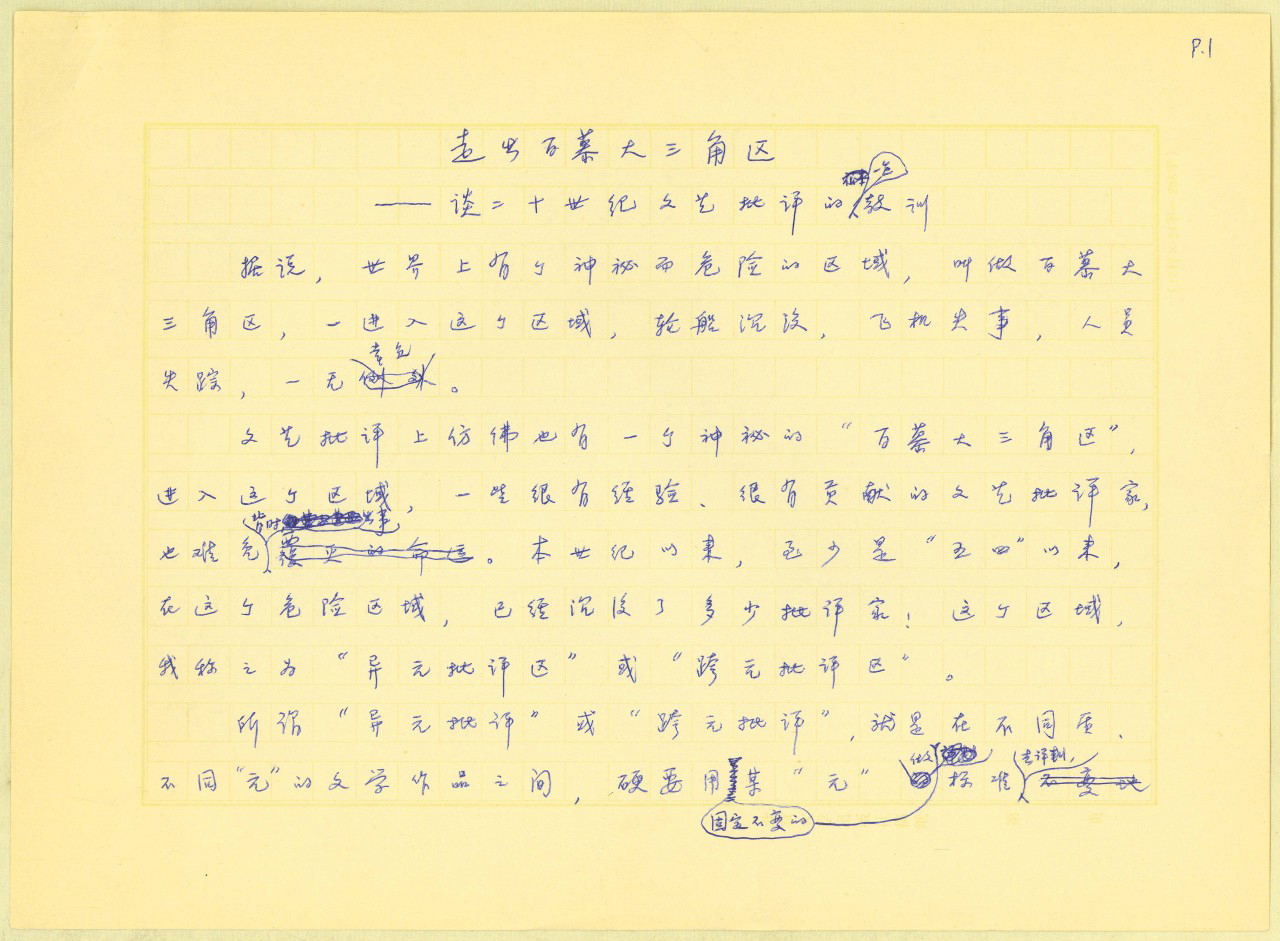 P.1
走出百慕大三角区
——谈二十世纪文艺批评的一点教训
据说，世界上有个神秘而危险的区域，叫做百慕大
三角区，一进入这个区域，轮船沉没，飞机失事，人员
失踪，一无幸免。
文艺批评上仿佛也有一个神秘的“百慕大三角区”，
进入这个区域，一些很有经验、很有贡献的文艺批评家，
也难免皆时出事。本世纪以来，至少是“五四”以来，
在这个危险区域，已经沉没了多少批评家！这个区域，
我称之为“异元批评区”或“跨元批评区”。
所谓“异元批评”或“跨元批评”，就是在不同质、
不同“元”的文学作品之间，硬要用某“元”做固定不变的标准去评判，